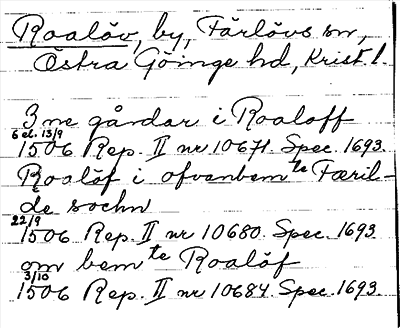 Roalöv, by, Färlövs sn,
Östra Göinge hd, Krist. l.
3ne gårdar i Roaloff
6 el. 13/9
1506 Rep. II nr 10671. Spec. 1693.
Roalöf i ofvanbemte Færil-
de sochn
22/9
1506 Rep. II nr 10680. Spec. 1693.
om bemte Roalöf
3/10
1506 Rep. II nr 10684. Spec. 1693.